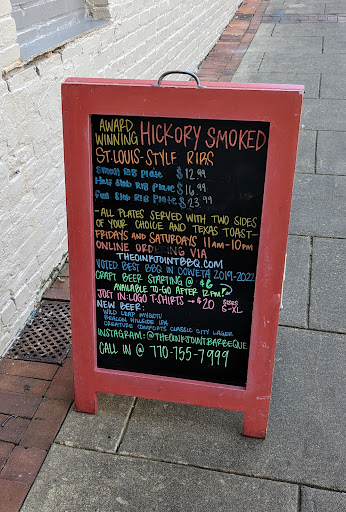 AWARD
WINNING HICKORY SMOKED
ST. LOUIS-STYLE RIBS
Small Rib Plate $12.99
Half Slab Rib Plate $16.99
Full Slab Rib Plate $23.99
-ALL PLATES SERVED WITH TWO SIDES
OF YOUR CHOICE AND TEXAS TOAST-
FRIDAYS AND SATURDAYS 11AM-10PM
ONLINE ORDERING VIA
THEOINKJOINTBBQ.COM
VOTED BEST BBQ IN COWETA 2019-2022
CRAFT BEER STARTING @ $6
AVAILABLE TO-GO AFTER 12PM
JOGT IN: LOGO T-SHIRTS → $20 SIZES
S-XL
NEW BEER:
WILD LEAP
BEACON HILLSIDE IPA
CREATURE COMFORTS CLASSIC CITY LAGER
INSTAGRAM: @THEOINKJOINTBARBEQUE
CALL IN @ 770-755-7999